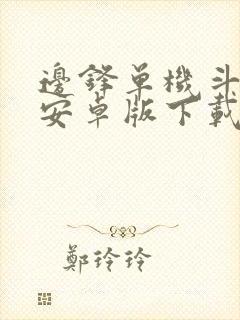 邊鋒單機斗
安卓版下載
鄭玲玲